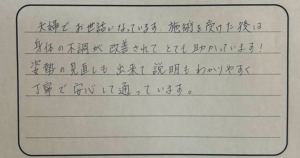 夫婦でお世話になっています。施術を受けた後は
身体の不調が改善されてとても助かっています!
姿勢の見直しも出来て説明もわかりやすく
丁寧で安心して通っています。